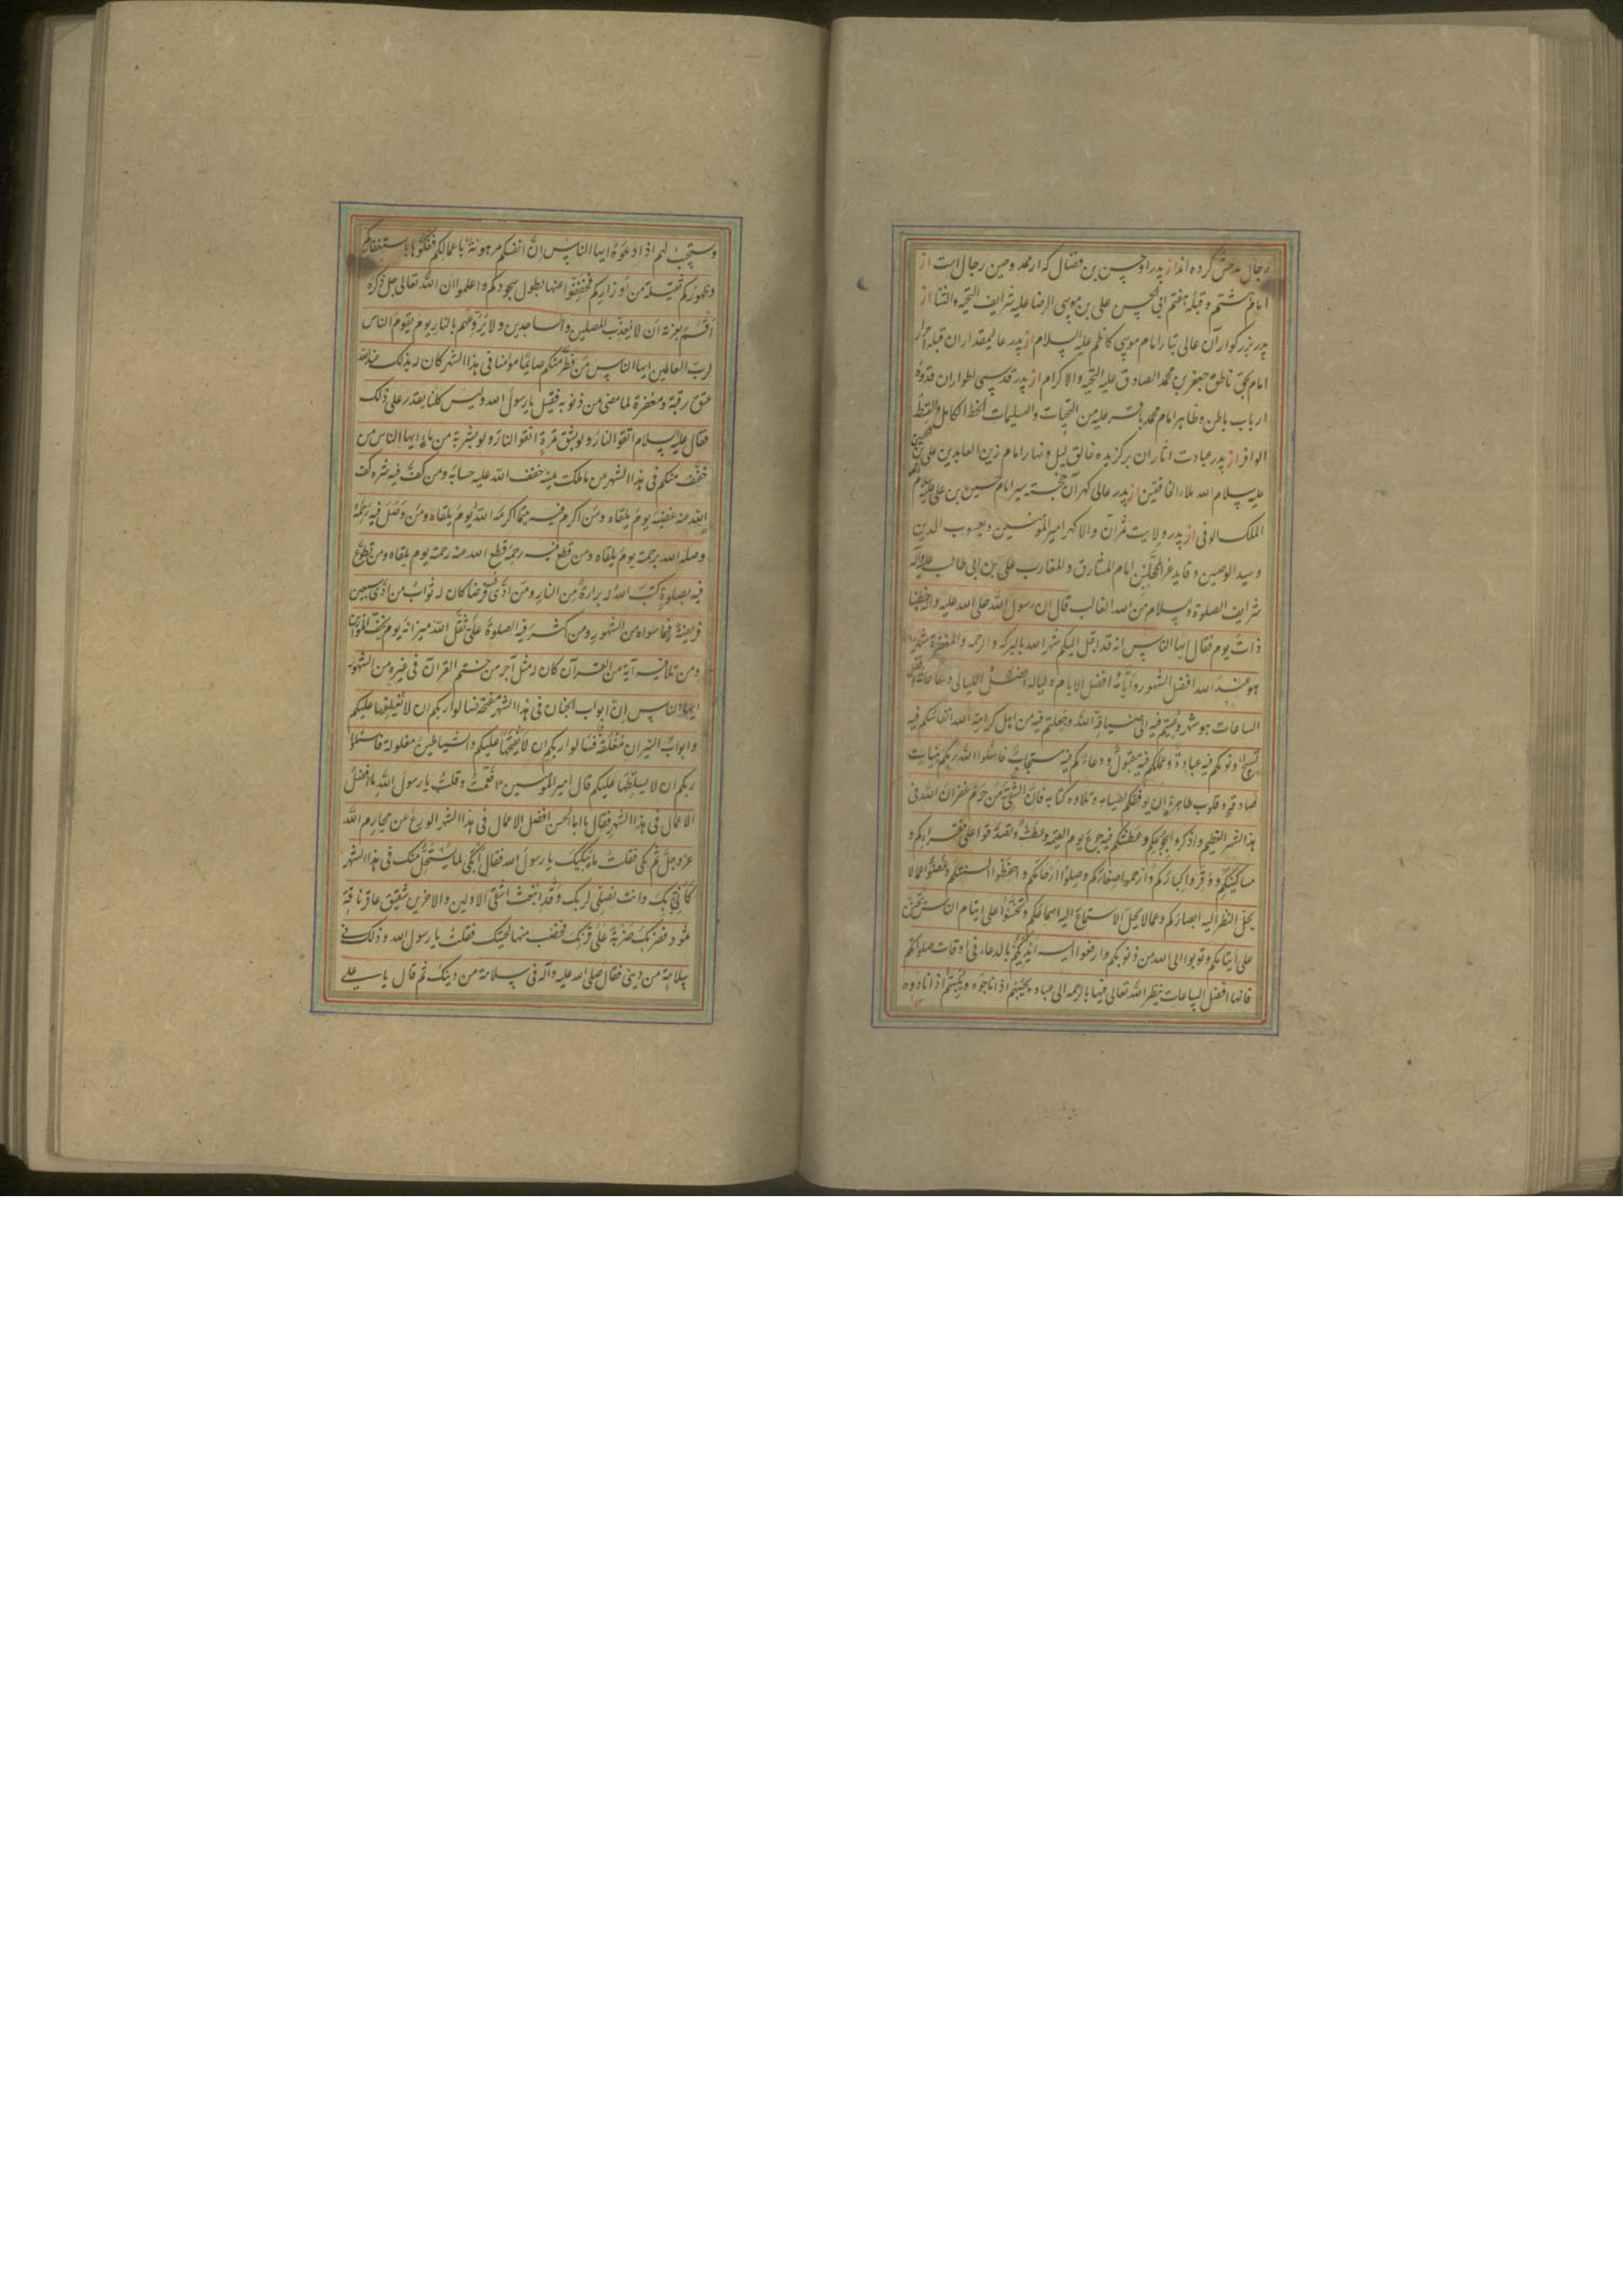 رجال مدحش کرده اند از پدر او حسن بن فضال که از ممدوحین رجال است از
امام هشتم و قبله هفتم ابی الحسن علی بن موسی الرضا علیه شرایف التحیة والثنا از
پدر بزرگوار آن عالی تبار امام موسی کاظم علیه السلام از پدر عالیمقدار ان قبله احرار
امام بحق ناطق جعفر بن محمد الصادق علیه التحیه والاکرام از پدر قدسی اطوار ان قدوهٔ
ارباب باطن وظاهر امام محمد باقر علیه من التحیات والتسلیمات الحظ الکامل والقسط
الوافر از پدر عبادت اثار ان برکزیده خالق لیل ونهار امام زین العابدین علی بن الحسین
علیه سلام الله ملاء الخافقین از پدر عالی کهر آن خجسته سیر امام حسین بن علی علیه سلام
الملک الوفی از پدر ولایت ثمر آن والا کهر امیر المؤمنین ویعسوب الدین
وسید الوصیین وقاید غر المحجلین امام المشارق والمغارب علی بن ابی طالب علیه وآله
شرایف الصلوة والسلام من الله الغالب قال ان رسول الله صلی الله علیه واله خطبنا
ذات یوم فقال ایها الناس انه قد اقبل الیکم شهر الله بالبرکه والرحمه والمغفرة شهر
هو عند الله افضل الشهور وایامه افضل الایام ولیالیه افضل اللیالی وساعاته افضل
الساعات هو شهر دعیتم فیه الی ضیافة الله وجعلتم فیه من اهل کرامة الله انفاسکم فیه
تسبیح ونومکم فیه عبادة وعملکم فیه مقبول ودعاءکم فیه مستجاب فاسئلوا الله ربکم بنیات
صادقه وقلوب طاهرة ان یوفقکم لصیامه وتلاوه کتابه فان الشقی من حرم غفران الله فی
هذا الشهر العظیم واذکروا بجوعکم وعطشکم فیه جوع یوم القیمه وعطشه وتصدقوا علی فقراءکم و
مساکینکم ووقروا کبارکم وارحموا صغارکم وصلوا ارحامکم واحفظوا السنتکم وغضوا عما لا
یحل النظر الیه ابصارکم وعما لا یحل الاستماع الیه اسماعکم وتحننوا علی ایتام الناس یتحنن
علی ایتامکم وتوبوا الی الله من ذنوبکم وارفعوا الیه ایدیکم بالدعاء فی اوقات صلواتکم
فانها افضل الساعات ینظر الله تعالی فیها بالرحمه الی عباده یجیبهم اذا ناجوه ویلبیهم اذا نادوه
ویستجیب لهم اذا دعوه ایها الناس ان انفسکم مرهونة باعمالکم ففکوها باستغفارکم
وظهورکم ثقیلة من اوزارکم فخففوا عنها بطول سجودکم واعلموا ان الله تعالی جل ذکره
اقسم بعزته ان لا یعذب المصلین والساجدین ولا یروعهم بالنار یوم یقوم الناس
لرب العالمین ایها الناس من فطر منکم صایما مؤمنا فی هذا الشهر کان له بذلک عند الله
عتق رقبة ومغفرة لما مضی من ذنوبه فقیل یا رسول الله ولیس کلنا یقدر علی ذلک
فقال علیه السلام اتقوا النار ولو بشق تمرة اتقوا النار ولو بشربة من ماء ایها الناس من
خفف منکم فی هذا الشهر عن ما ملکت یمینه خفف الله علیه حسابه ومن کف فیه شره کف
الله عنه غضبه یوم یلقاه ومن اکرم فیه یتیما اکرمه الله یوم یلقاه ومن وصل فیه رحمه
وصله الله برحمته یوم یلقاه ومن قطع فیه رحمه قطع الله عنه رحمته یوم یلقاه ومن تطوع
فیه بصلوة کتب الله له براءة من النار ومن ادی فیه فرضا کان له ثواب من ادی سبعین
فریضة فیما سواه من الشهور ومن کثر فیه الصلوة علی ثقل الله میزانه یوم تخف الموازین
ومن تلا فیه آیة من القرآن کان له مثل اجر من ختم القرآن فی غیره من الشهور
ایها الناس ان ابواب الجنان فی هذا الشهر مفتحة فسالوا ربکم ان لا یغلقها علیکم
وابواب النیران مغلقة فسالوا ربکم ان لا یفتحها علیکم والشیاطین مغلولة فاسئلوا
ربکم ان لا یسلطها علیکم قال امیر المؤمنین فقمت وقلت یا رسول الله ما افضل
الاعمال فی هذا الشهر فقال یا ابا الحسن افضل الاعمال فی هذا الشهر الورع عن محارم الله
عز وجل ثم بکی فقلت ما یبکیک یا رسول الله فقال ابکی لما یستحل منک فی هذا الشهر
کانی بک وانت تصلی لربک وقد انبعث اشقی الاولین والاخرین شقیق عاقر ناقة
ثمود فضربک ضربة علی قرنک فخضب منها لحیتک فقلت یا رسول الله وذلک فی
سلامة من دینی فقال صلی الله علیه وآله فی سلامة من دینک ثم قال یا علی